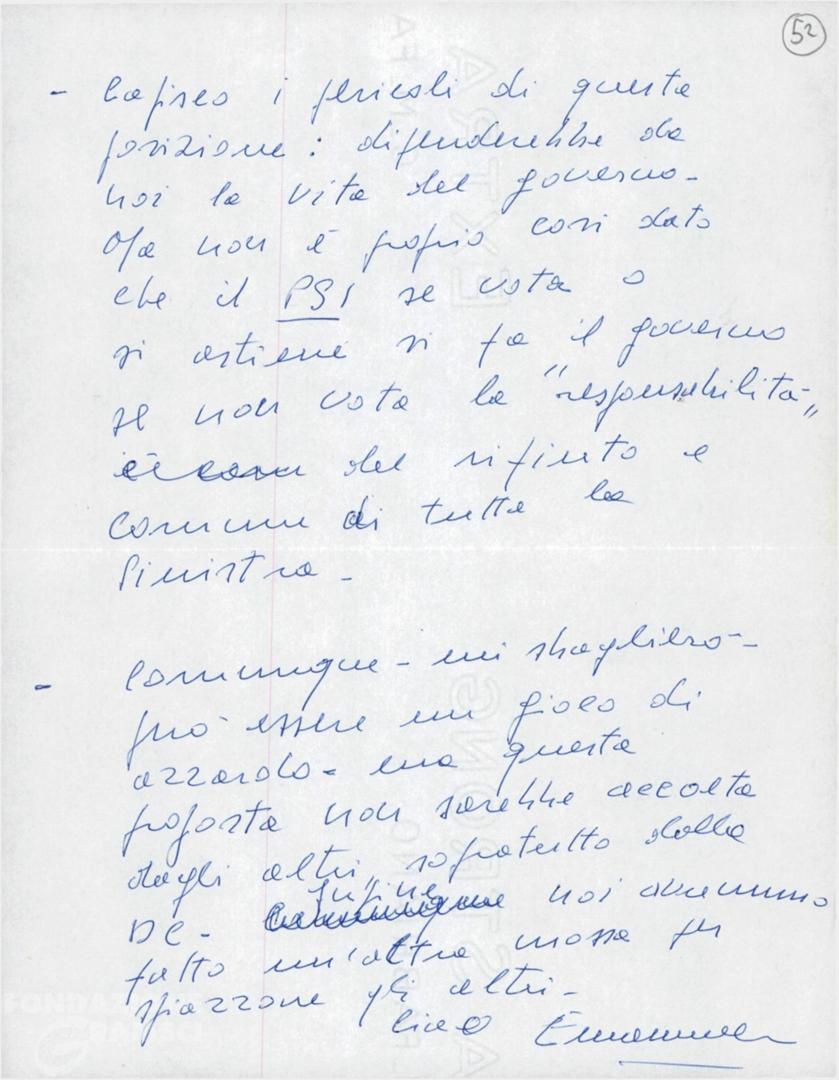 52
- Capisco i pericoli di questa
posizione: dipenderebbe da
noi la vita del governo -
Ma non è proprio così dato
che il PSI se vota o
si astiene si fa il governo
se non vota la "responsabilità"
del rifiuto e
comune di tutta la
Sinistra -
- Comunque - mi sbaglierò -
può essere un gioco di
azzardo - ma questa
proposta non sarebbe accolta
dagli altri, sopratutto dalla
DC - Infine noi avremmo
fatto un'altra mossa per
spiazzare gli altri -
Ciao Emanuele
FONDAZIONE
GRAMSCI